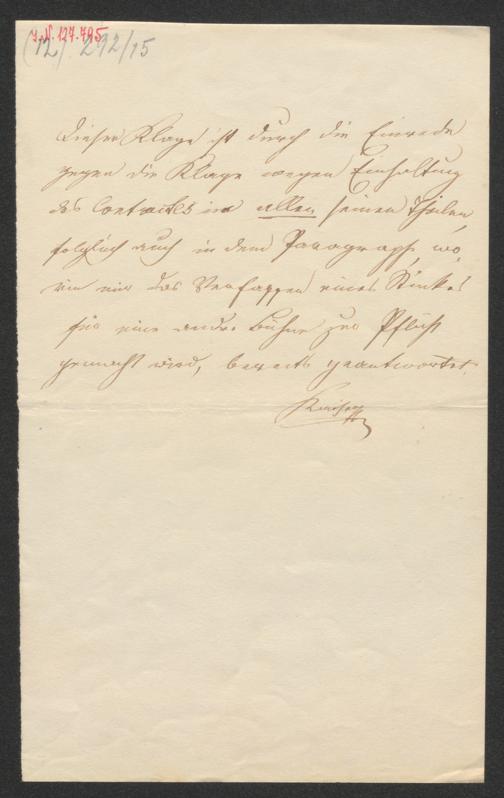 I.N. 127.795
(12) 292/15
Dieser Klage ist durch die Einrede
gegen die Klage wegen Einhaltung
des Contractes in allen seinen Theilen,
folglich auch in dem Paragraph, wo
rin mir das Verfassen eines Stückes
für eine andre Bühne zur Pflicht
gemacht wird, bereits geantwortet.
Kaiser